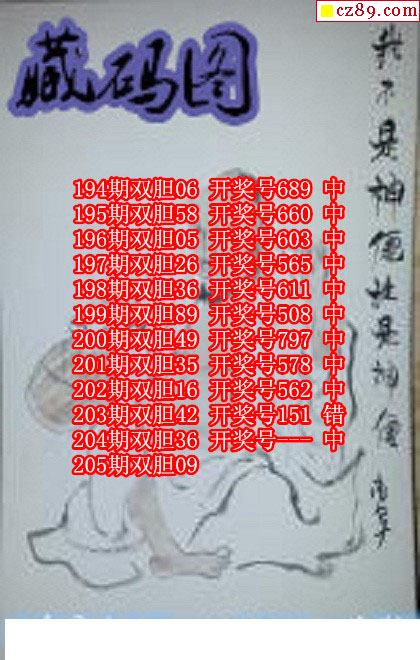 cz89.com
藏码图
194期双胆06 开奖号689 中
195期双胆58 开奖号660 中
196期双胆05 开奖号603 中
197期双胆26 开奖号565 中
198期双胆36 开奖号611 中
199期双胆89 开奖号508 中
200期双胆49 开奖号797 中
201期双胆35 开奖号578 中
202期双胆16 开奖号562 中
203期双胆42 开奖号151 错
204期双胆36 开奖号--- 中
205期双胆09
我不是神仙谁是神仙